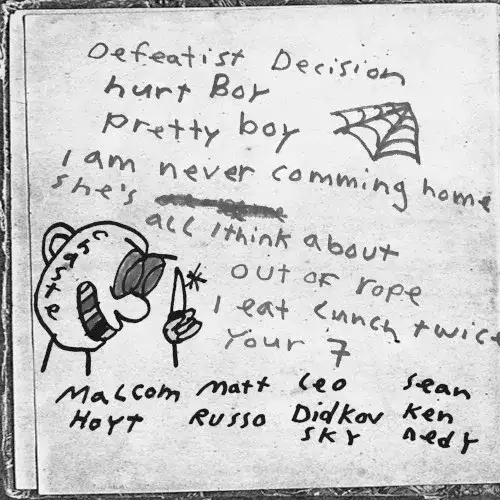 Defeatist Decision
hurt Boy
pretty boy
I am never comming home
she's
all I think about
out of rope
I eat lunch twice
Your 7
Malcom Matt Leo Sean
Hoyt Russo Didkov Ken
sky nedy